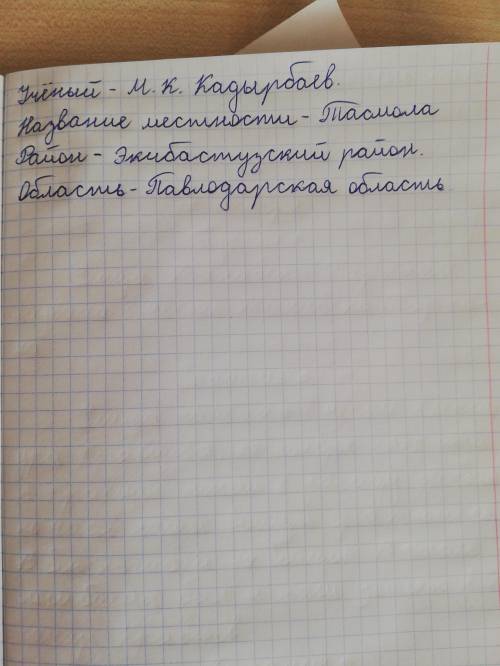 Учёный - М. К. Кадырбаев.
Название местности - Тасмола
Район - Экибастузский район.
Область - Павлодарская область